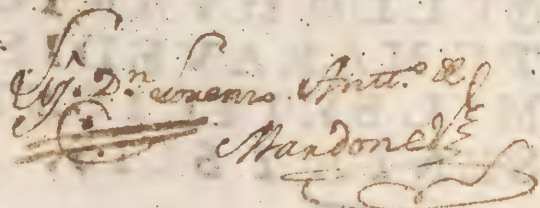 D.ⁿ Lorenzo Antt.º de
Mardones